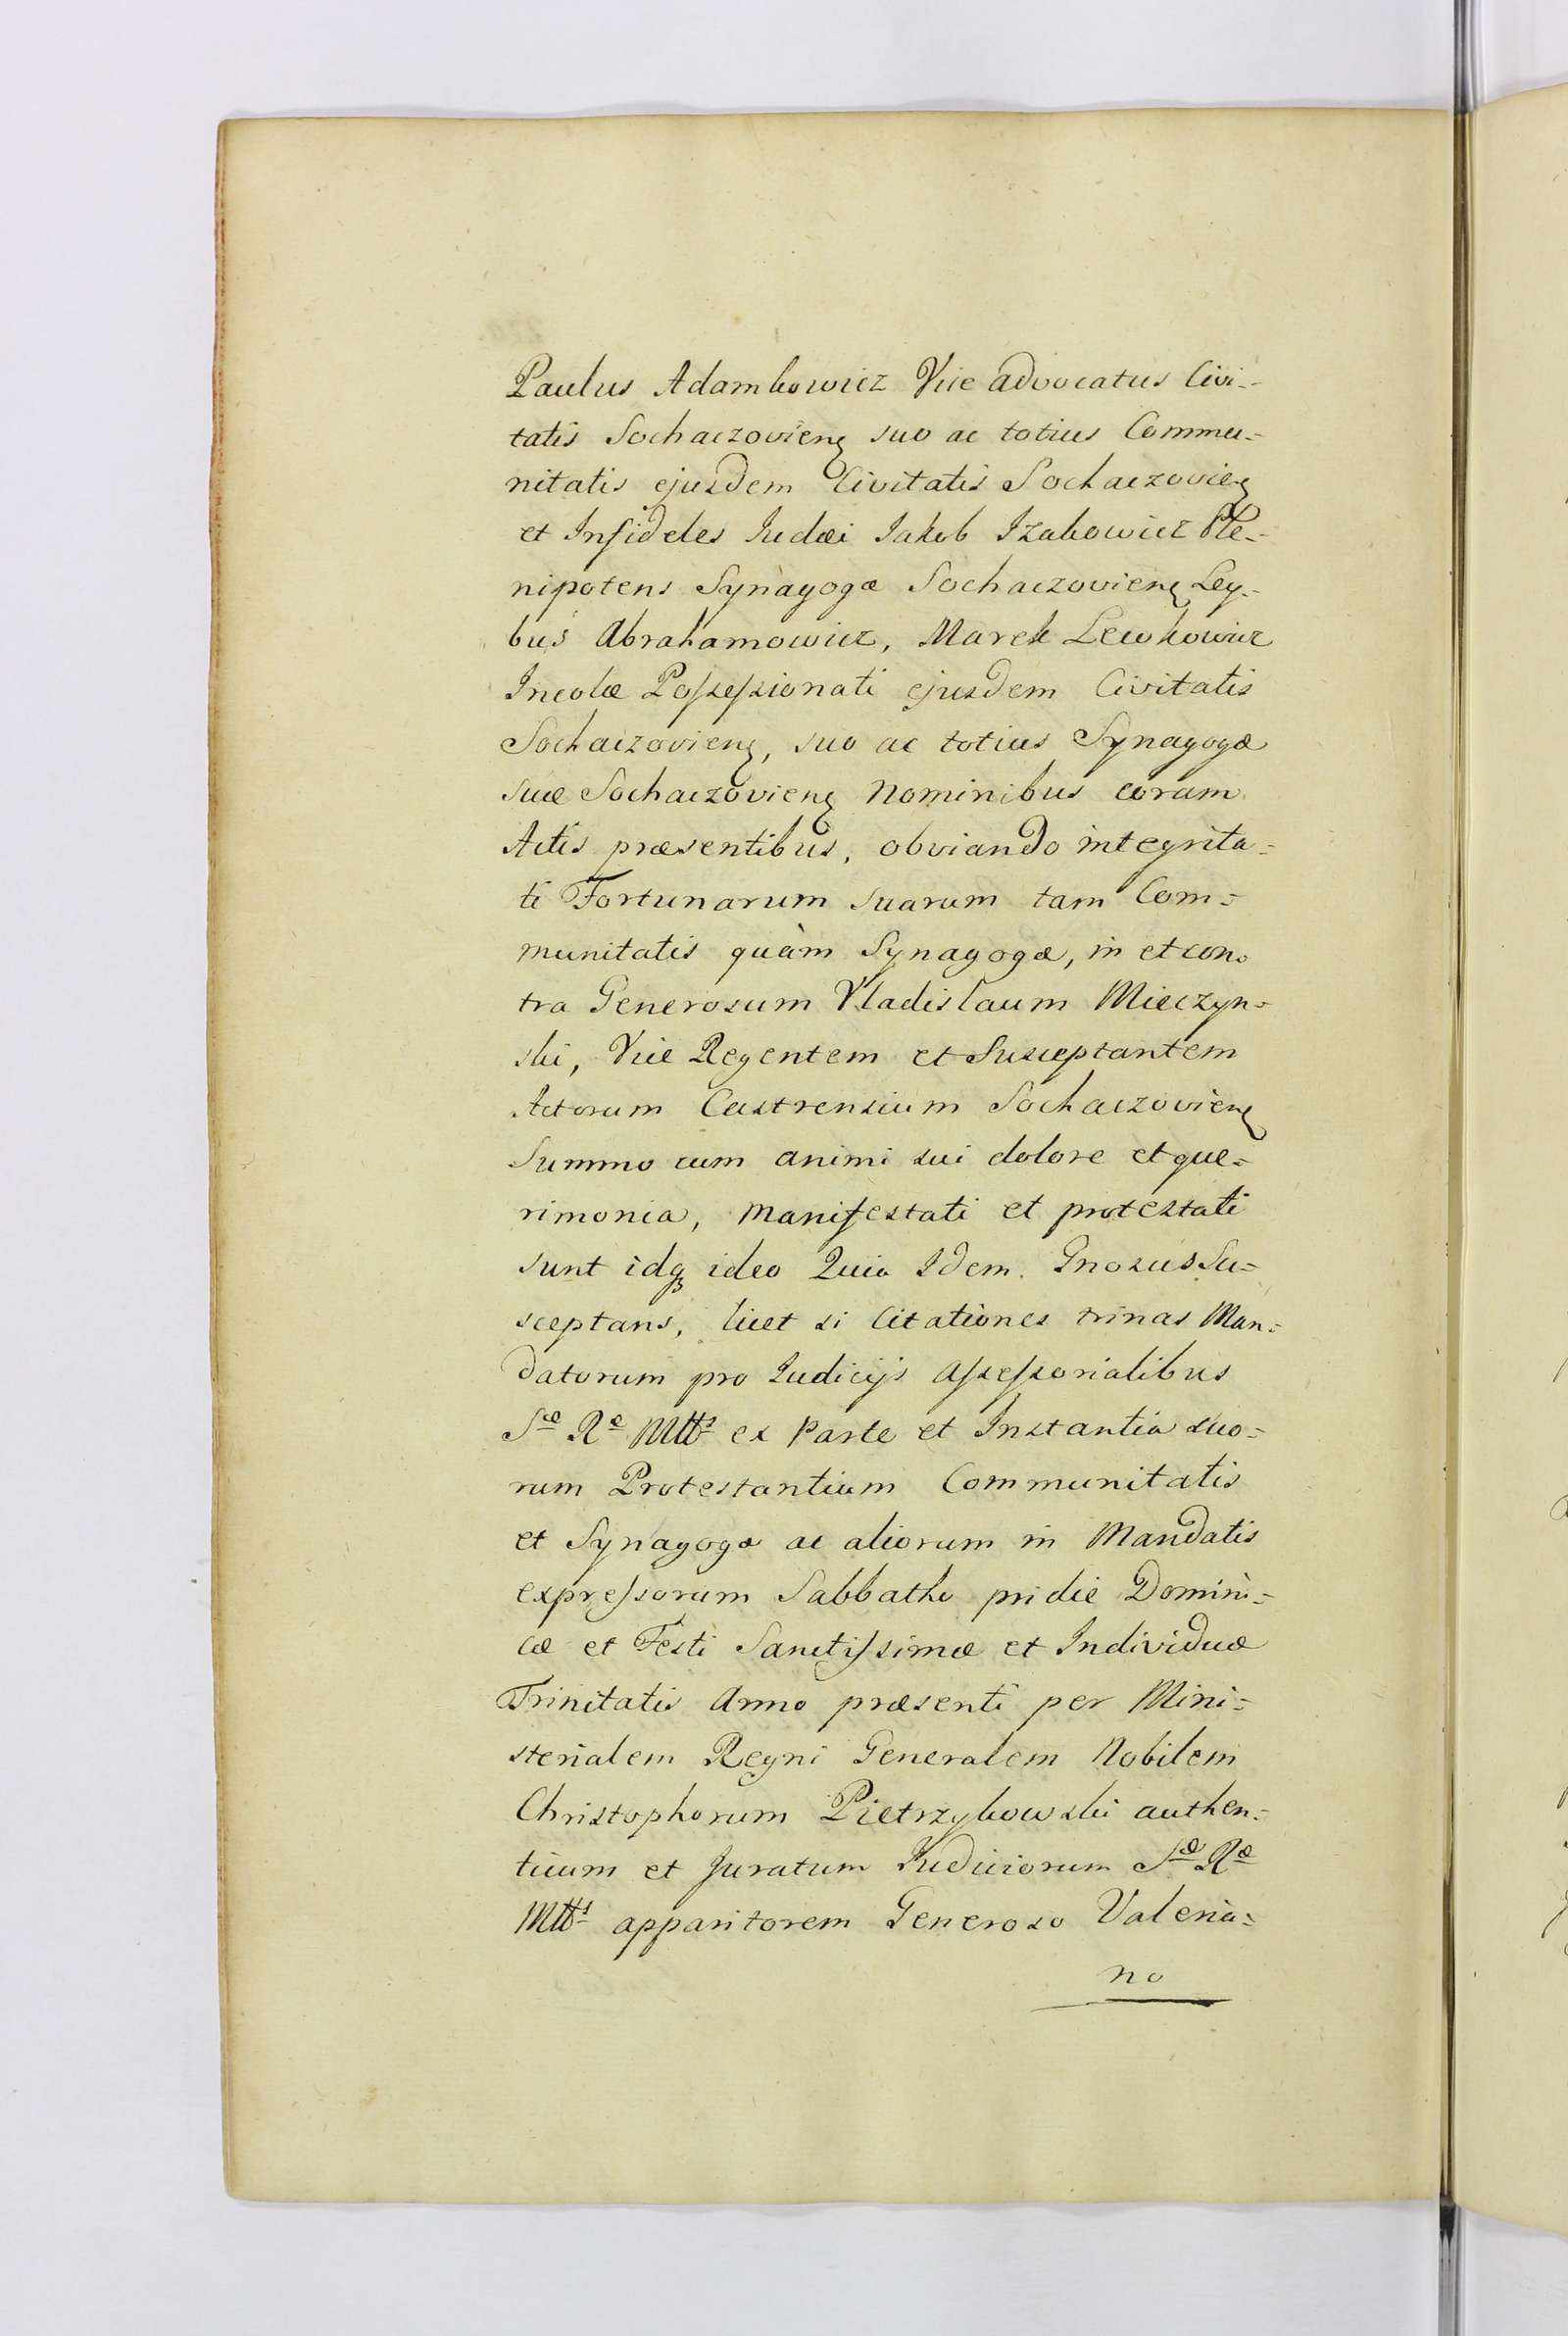 Paulus Adamkowicz Vice advocatus Civi=
tatis Sochaczovienę suo ac totius Commu=
nitatis ejusdem Civitatis Sochaczovienę
et Infideles Iudæi Iakob Izakowicz Ple=
nipotens Synagogæ Sochaczovienę Ley=
bus Abrahamowicz, Marek Lewkowicz
Incolæ Possessionati ejusdem Civitatis
Sochaczovienę, suo ac totius Synagogæ
suæ Sochaczovienę Nominibus coram
Actis præsentibus, obviando integrita=
ti Fortunarum suarum tam Com=
munitatis quàm Synagogæ, in et con=
tra Generosum Vladislaum Mieczyn=
ski, Vice Regentem et Susceptantem
Actorum Castrensium Sochaczovienę
Summo cum animi sui dolore et que=
rimonia, manifestati et protestati
sunt idqꝫ ideo Quia Idem Gnosus Su=
sceptans, licet si Citationes trinas Man=
datorum pro Iudicijs Assessorialibus
Sæ Ræ Mttis ex Parte et Instantia suo=
rum Protestantium Communitatis
et Synagogæ ac aliorum in Mandatis
expressorum Sabbatho pridie Domini=
cæ et Festi Sanctissimæ et Individuæ
Trinitatis Anno præsenti per Mini=
sterialem Regni Generalem Nobilem
Christophorum Pietrzykowski authen=
ticum et Juratum Iudiciorum Sæ Ræ
Mttis apparitorem Generoso Valeria=
no